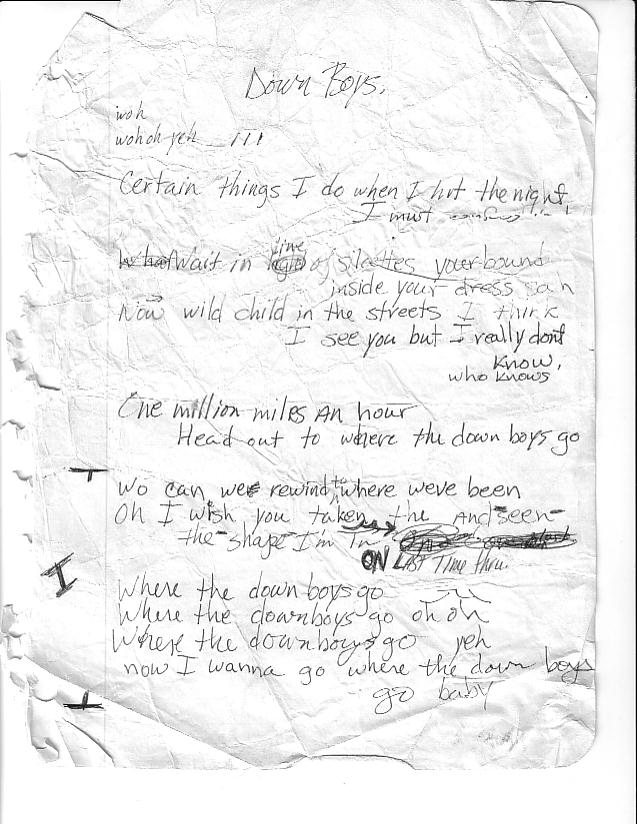 Down Boys.
woh
woh oh yeh - ///
Certain things I do when I hit the night
I must
Wait in line of siletties your bound
inside your dress
Now wild child in the streets I think
I see you but I really dont
know,
who knows
One million miles an hour
Head out to where the down boys go
wo can we rewind to where weve been
Oh I wish you taken the And seen
the shape I'm in
ON LAST Time thru.
Where the down boys go
Where the down boys go oh oh
Where the down boys go yeh
now I wanna go where the down boys
go baby